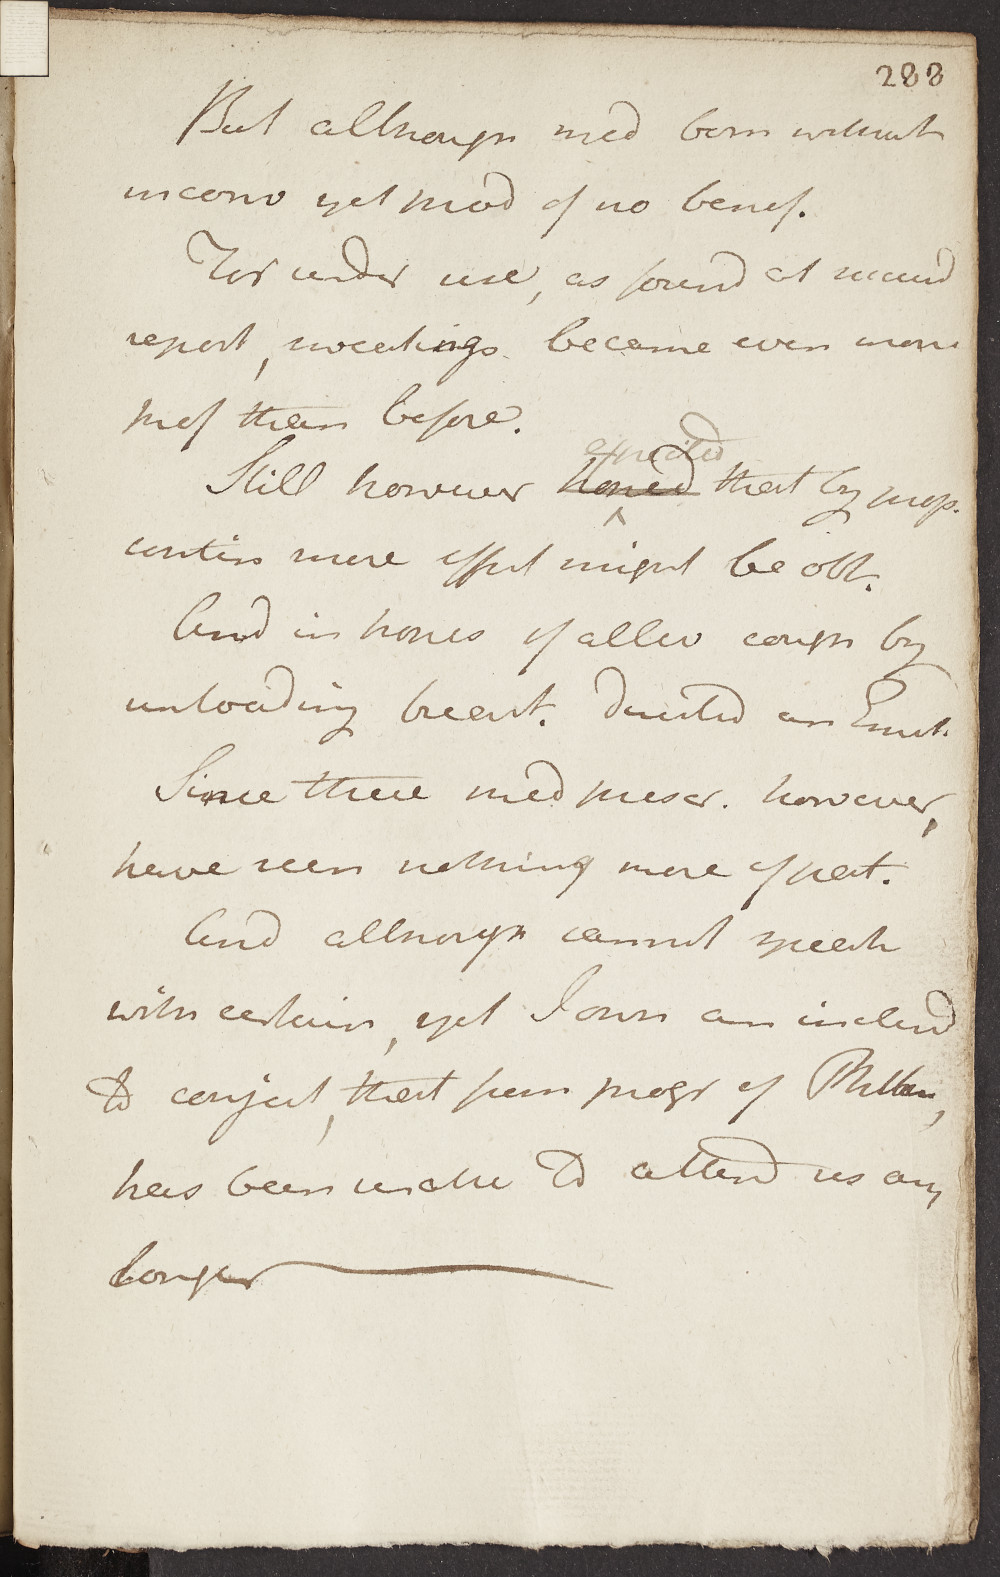 288
But although med born without
inconv yet prod of no benef.
For under use, as found at second
report, sweatings became even more
prof than before.
expected
Still however hoped that by prop.
contin more effect might be obt.
And in hopes of allev cough by
unloading breast. Directed an Emet.
Since these med prescr. however,
have seen nothing more of pat.
And although cannot speak
with certain, yet I own am inclind
to conject, that from progr of Phthis,
has been unable to attend us any
longer